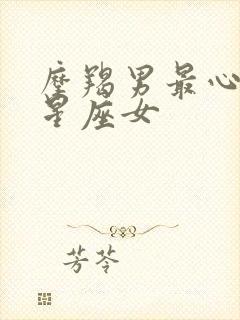 摩羯男最心
星座女
芳苓